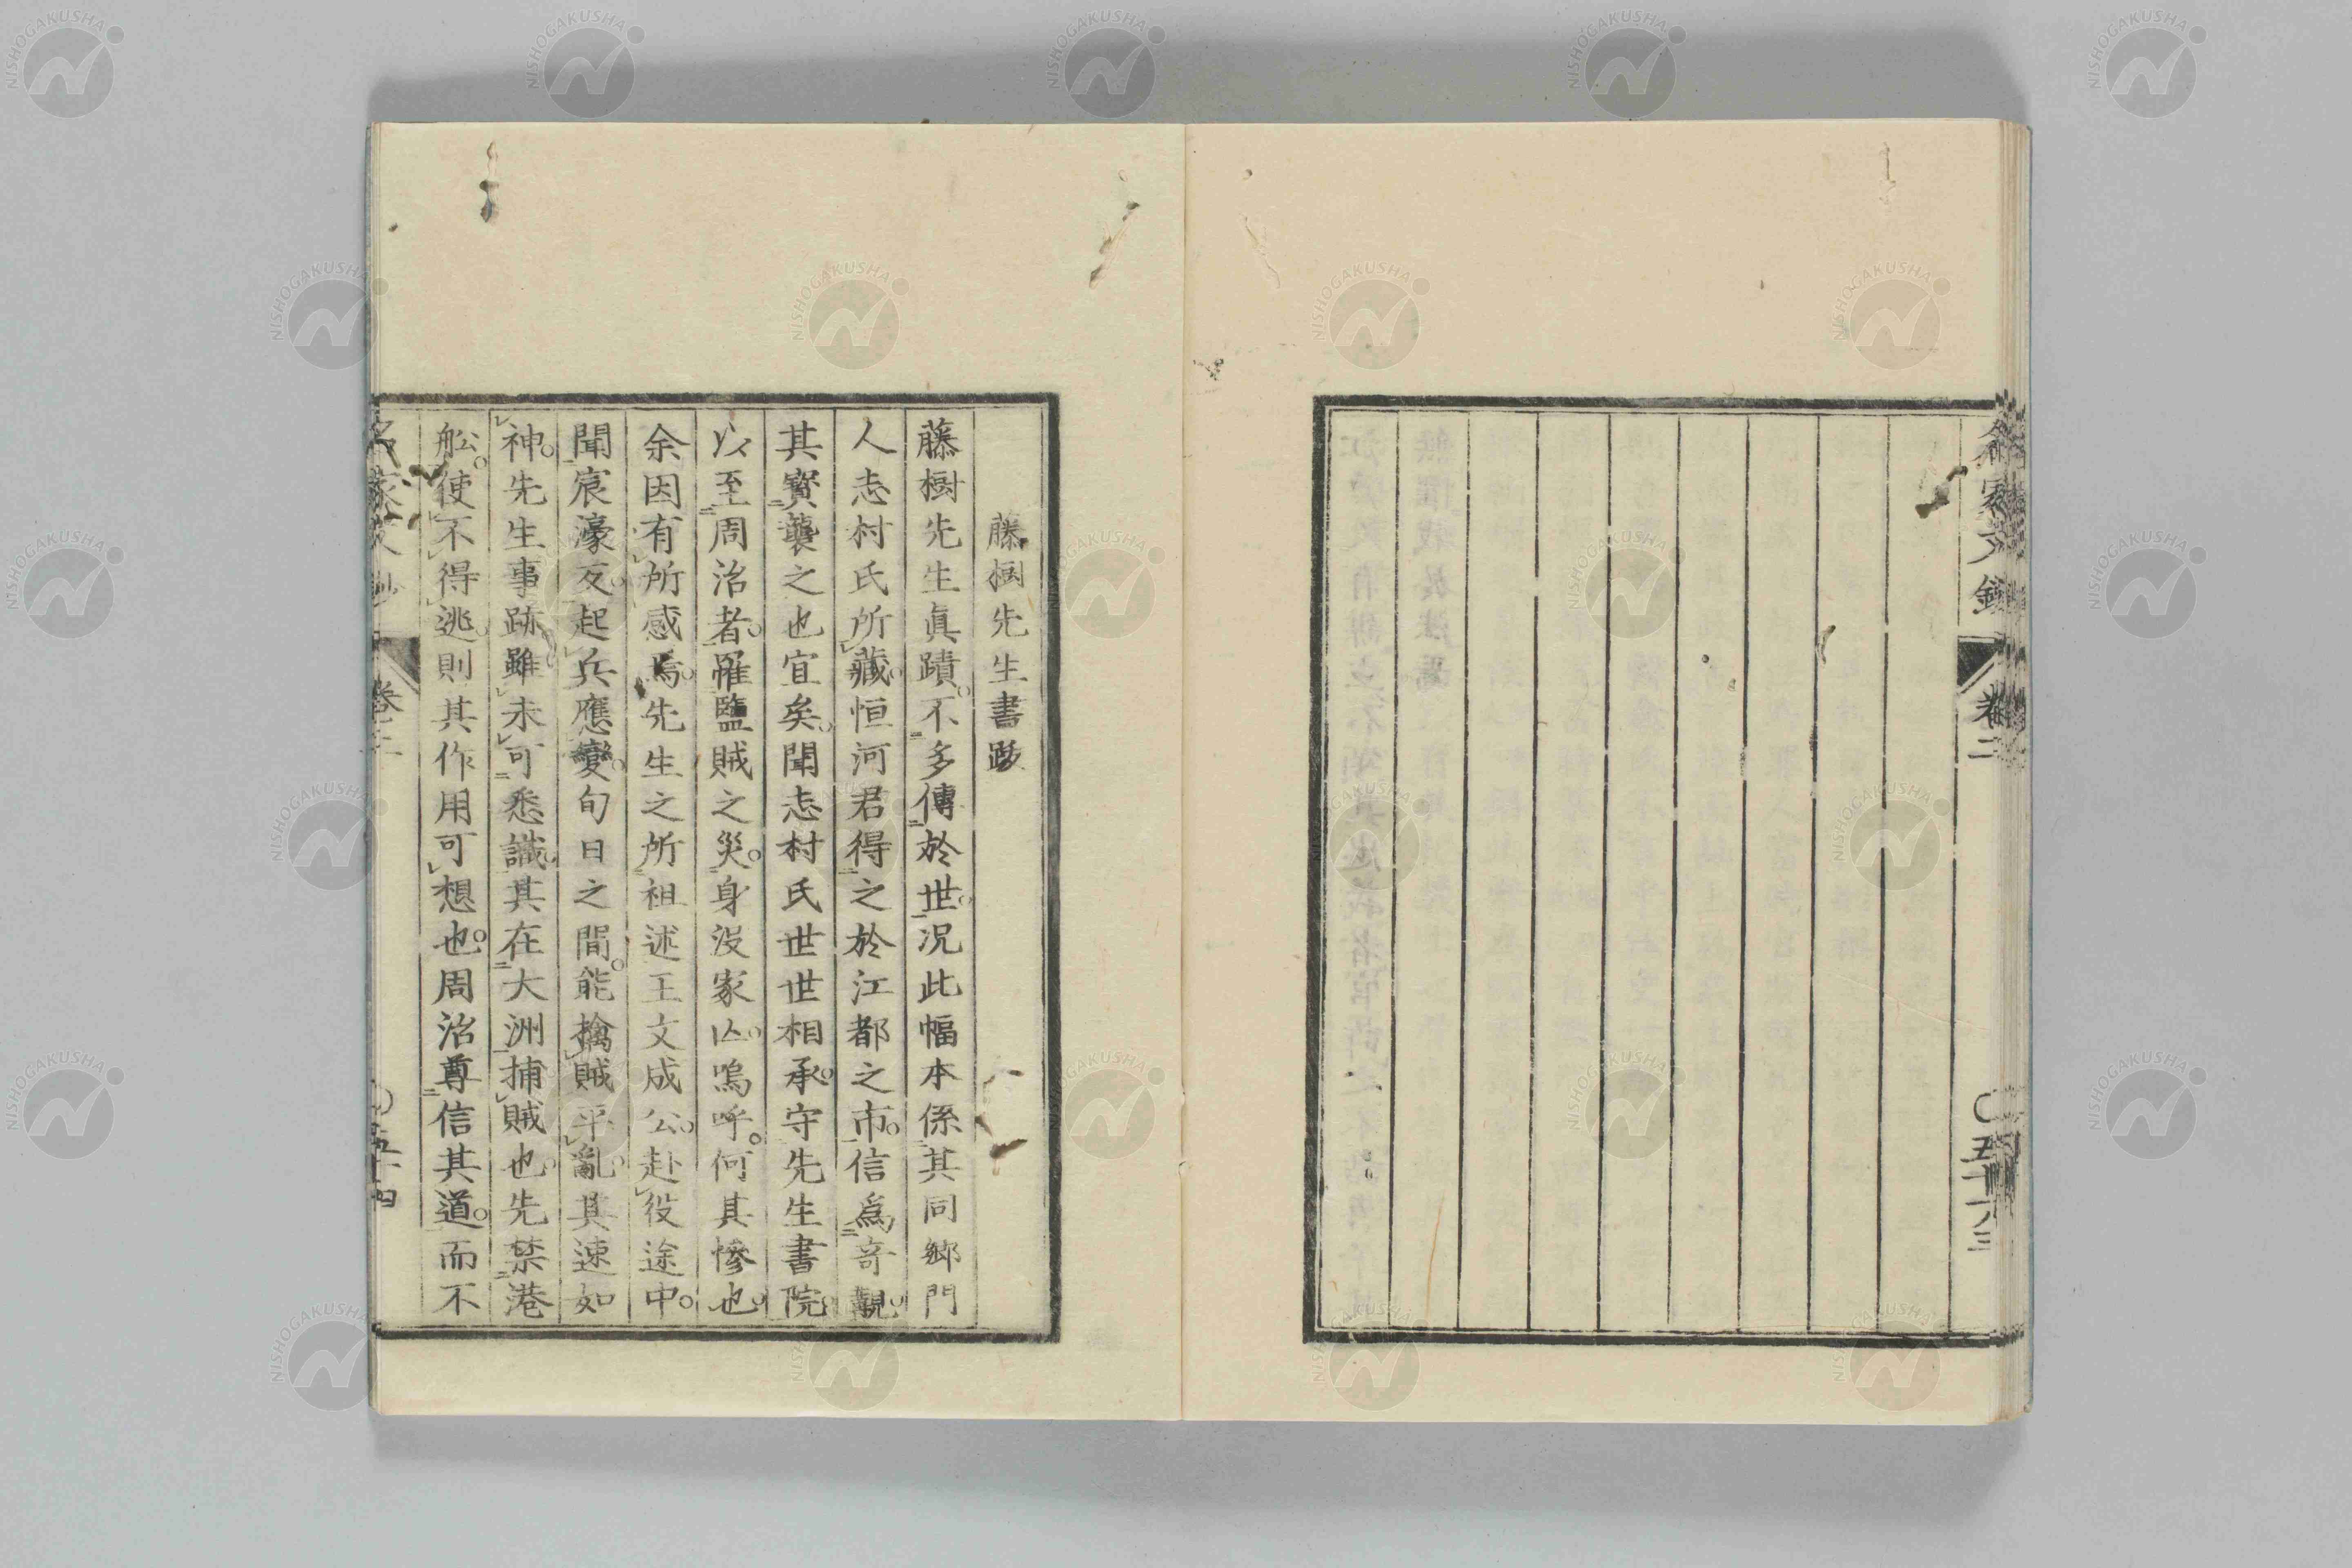 卷二
藤樹先生書跋
藤樹先生眞蹟不多傳於世況此幅本係其同鄉門
人志村氏所藏恒河君得之於江都之市信爲奇觀
其寳襲之也宜矣聞志村氏世世相承守先生書院
以至周治者罹鹽賊之災身沒家亾嗚呼何其慘也
余因有所感焉先生之所祖述王文成公赴役途中
聞宸濠反起兵應變旬日之間能擒賊平亂其速如
神先生事跡雖未可悉識其在大洲捕賊也先禁港
舩使不得逃則其作用可想也周治尊信其道而不
名家文抄 卷二 五十四
NISHOGAKUSHA